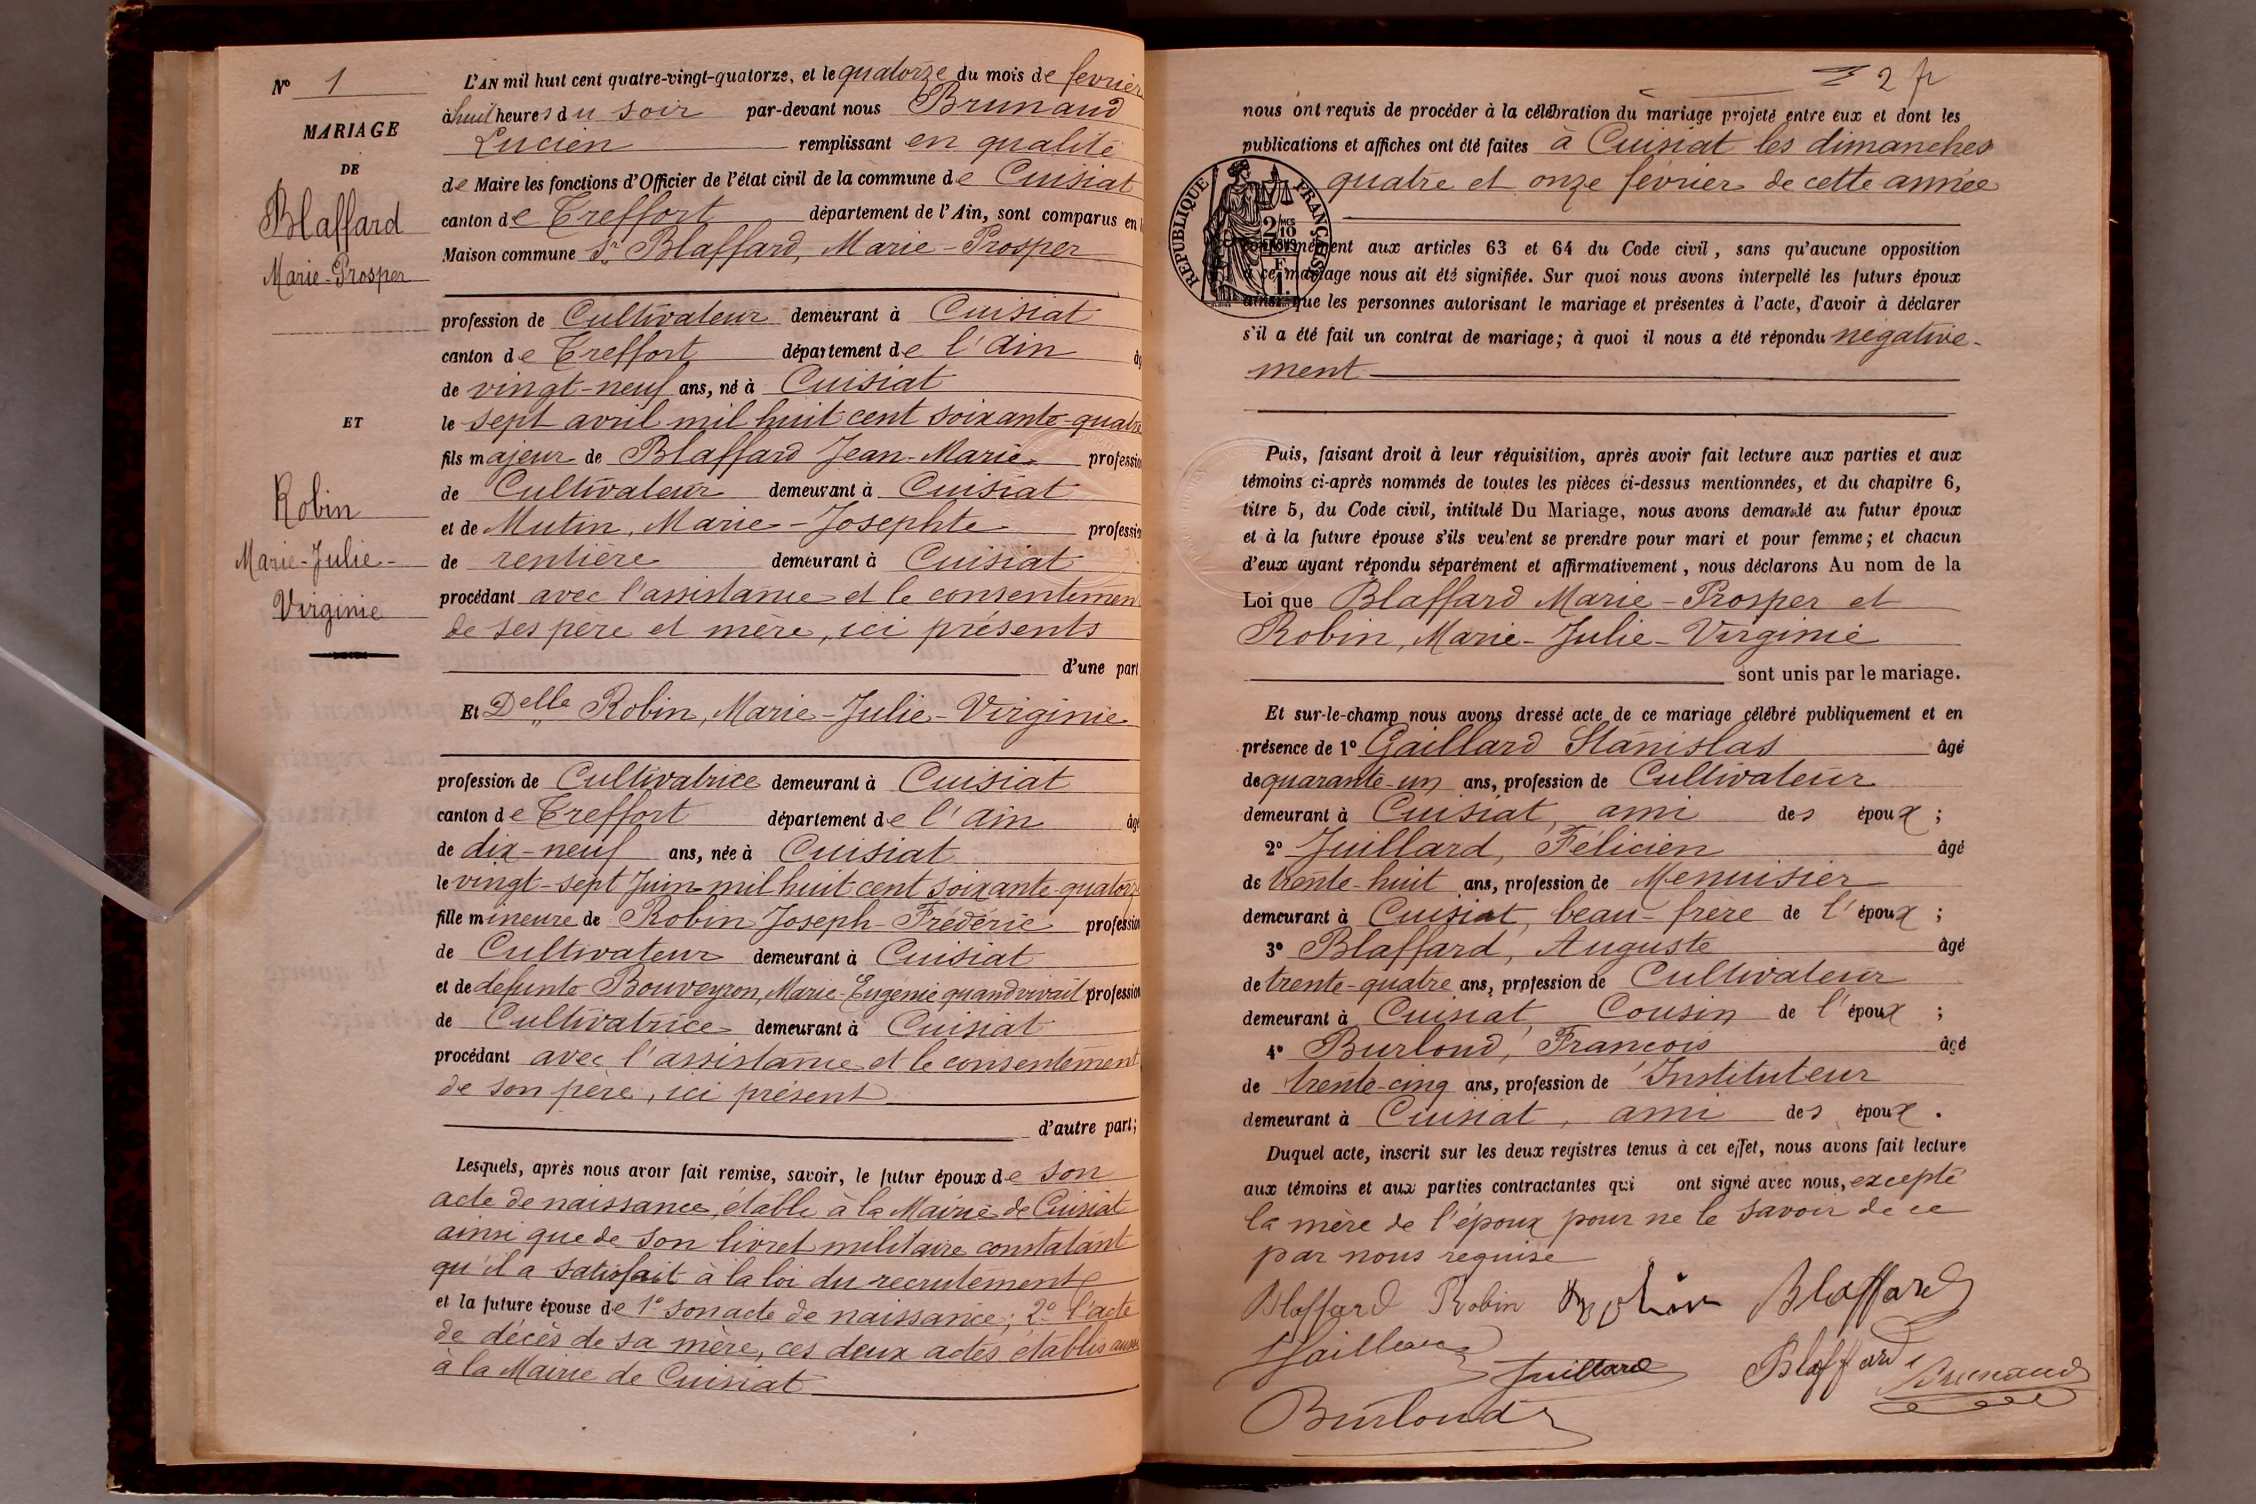 N° 1
MARIAGE
DE
Blaffard
Marie-Prosper
ET
Robin
Marie-Julie-
Virginie
L'AN mil huit cent quatre-vingt-quatorze, et le quatorze du mois de février
à huit heures du soir par-devant nous Brunaud
Lucien remplissant en qualité
de Maire les fonctions d'Officier de l'état civil de la commune de Cuisiat
canton de Treffort département de l'Ain, sont comparus en
Maison commune Sr Blaffard, Marie-Prosper
profession de Cultivateur demeurant à Cuisiat
canton de Treffort département de l'Ain
de vingt-neuf ans, né à Cuisiat
le sept avril mil huit cent soixante-quatre
fils majeur de Blaffard Jean-Marie profession
de Cultivateur demeurant à Cuisiat
et de Mutin, Marie-Josephte profession
de rentière demeurant à Cuisiat
procédant avec l'assistance et le consentemen
de ses père et mère, ici présents
d'une part
Et Delle Robin, Marie-Julie-Virginie
profession de Cultivatrice demeurant à Cuisiat
canton de Treffort département de l'Ain âgé
de dix-neuf ans, née à Cuisiat
le vingt-sept Juin mil huit cent soixante-quatorz
fille mineure de Robin Joseph-Frédéric profession
de Cultivateur demeurant à Cuisiat
et de defunte Bouveyron, Marie-Eugenie quand vivait profession
de Cultivatrice demeurant à Cuisiat
procédant avec l'assistance et le consentement
de son père, ici présent
d'autre part;
Lesquels, après nous avoir fait remise, savoir, le futur époux de son
acte de naissance, établi à la Mairie de Cuisiat
ainsi que de son livret militaire constatant
qu'il a satisfait à la loi du recrutement
et la future épouse de 1° son acte de naissance; 2° l'acte
de décès de sa mère, ces deux actes établis aussi
à la Mairie de Cuisiat
2 fr
nous ont requis de procéder à la célébration du mariage projeté entre eux et dont les
publications et affiches ont été faites à Cuisiat les dimanches
quatre et onze février de cette année
RÉPUBLIQUE FRANÇAISE
conformément aux articles 63 et 64 du Code civil, sans qu'aucune opposition
à ce mariage nous ait été signifiée. Sur quoi nous avons interpellé les futurs époux
ainsi que les personnes autorisant le mariage et présentes à l'acte, d'avoir à déclarer
s'il a été fait un contrat de mariage; à quoi il nous a été répondu négative-
ment
Puis, faisant droit à leur réquisition, après avoir fait lecture aux parties et aux
témoins ci-après nommés de toutes les pièces ci-dessus mentionnées, et du chapitre 6,
titre 5, du Code civil, intitulé Du Mariage, nous avons demandé au futur époux
et à la future épouse s'ils veulent se prendre pour mari et pour femme; et chacun
d'eux ayant répondu séparément et affirmativement, nous déclarons Au nom de la
Loi que Blaffard Marie-Prosper et
Robin, Marie-Julie-Virginie
sont unis par le mariage.
Et sur-le-champ nous avons dressé acte de ce mariage célébré publiquement et en
présence de 1° Gaillard Stanislas âgé
de quarante-un ans, profession de Cultivateur
demeurant à Cuisiat, ami des époux;
2° Juillard, Félicien âgé
de trente-huit ans, profession de Menuisier
demeurant à Cuisiat, beau-frère de l'époux;
3° Blaffard, Auguste âgé
de trente-quatre ans, profession de Cultivateur
demeurant à Cuisiat, Cousin de l'époux;
4° Burloud, François âgé
de trente-cinq ans, profession de Instituteur
demeurant à Cuisiat, ami des époux.
Duquel acte, inscrit sur les deux registres tenus à cet effet, nous avons fait lecture
aux témoins et aux parties contractantes qui ont signé avec nous, excepté
la mère de l'époux pour ne le savoir de ce
par nous requise
Blaffard Robin Blaffard
Gaillard
Juillard Blaffard Brunaud
Burloud